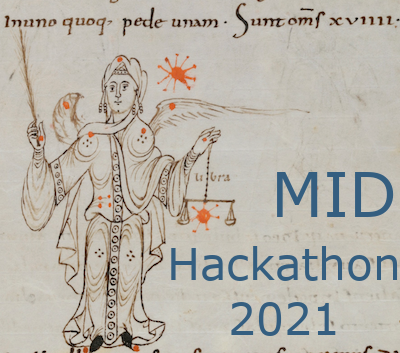 In uno quoq; pede unam. Sunt om̅s xviiii.
Libra
MID
Hackathon
2021